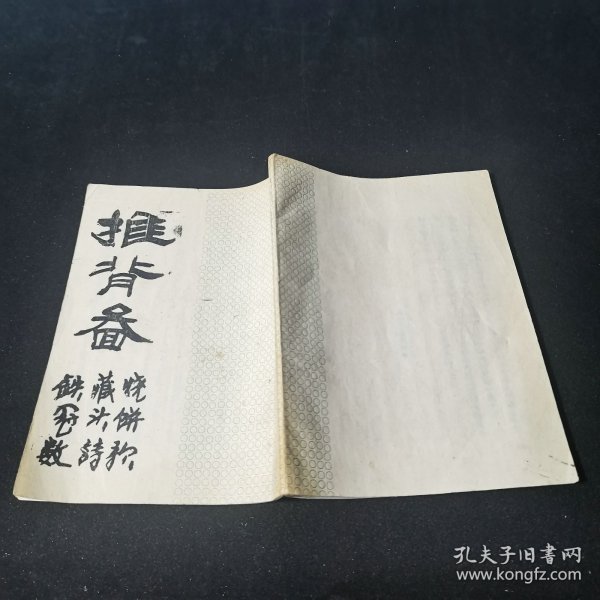 推背啚
烧餅歌、
藏头詩、
鉄冠数
孔夫子旧书网
www.kongfz.com